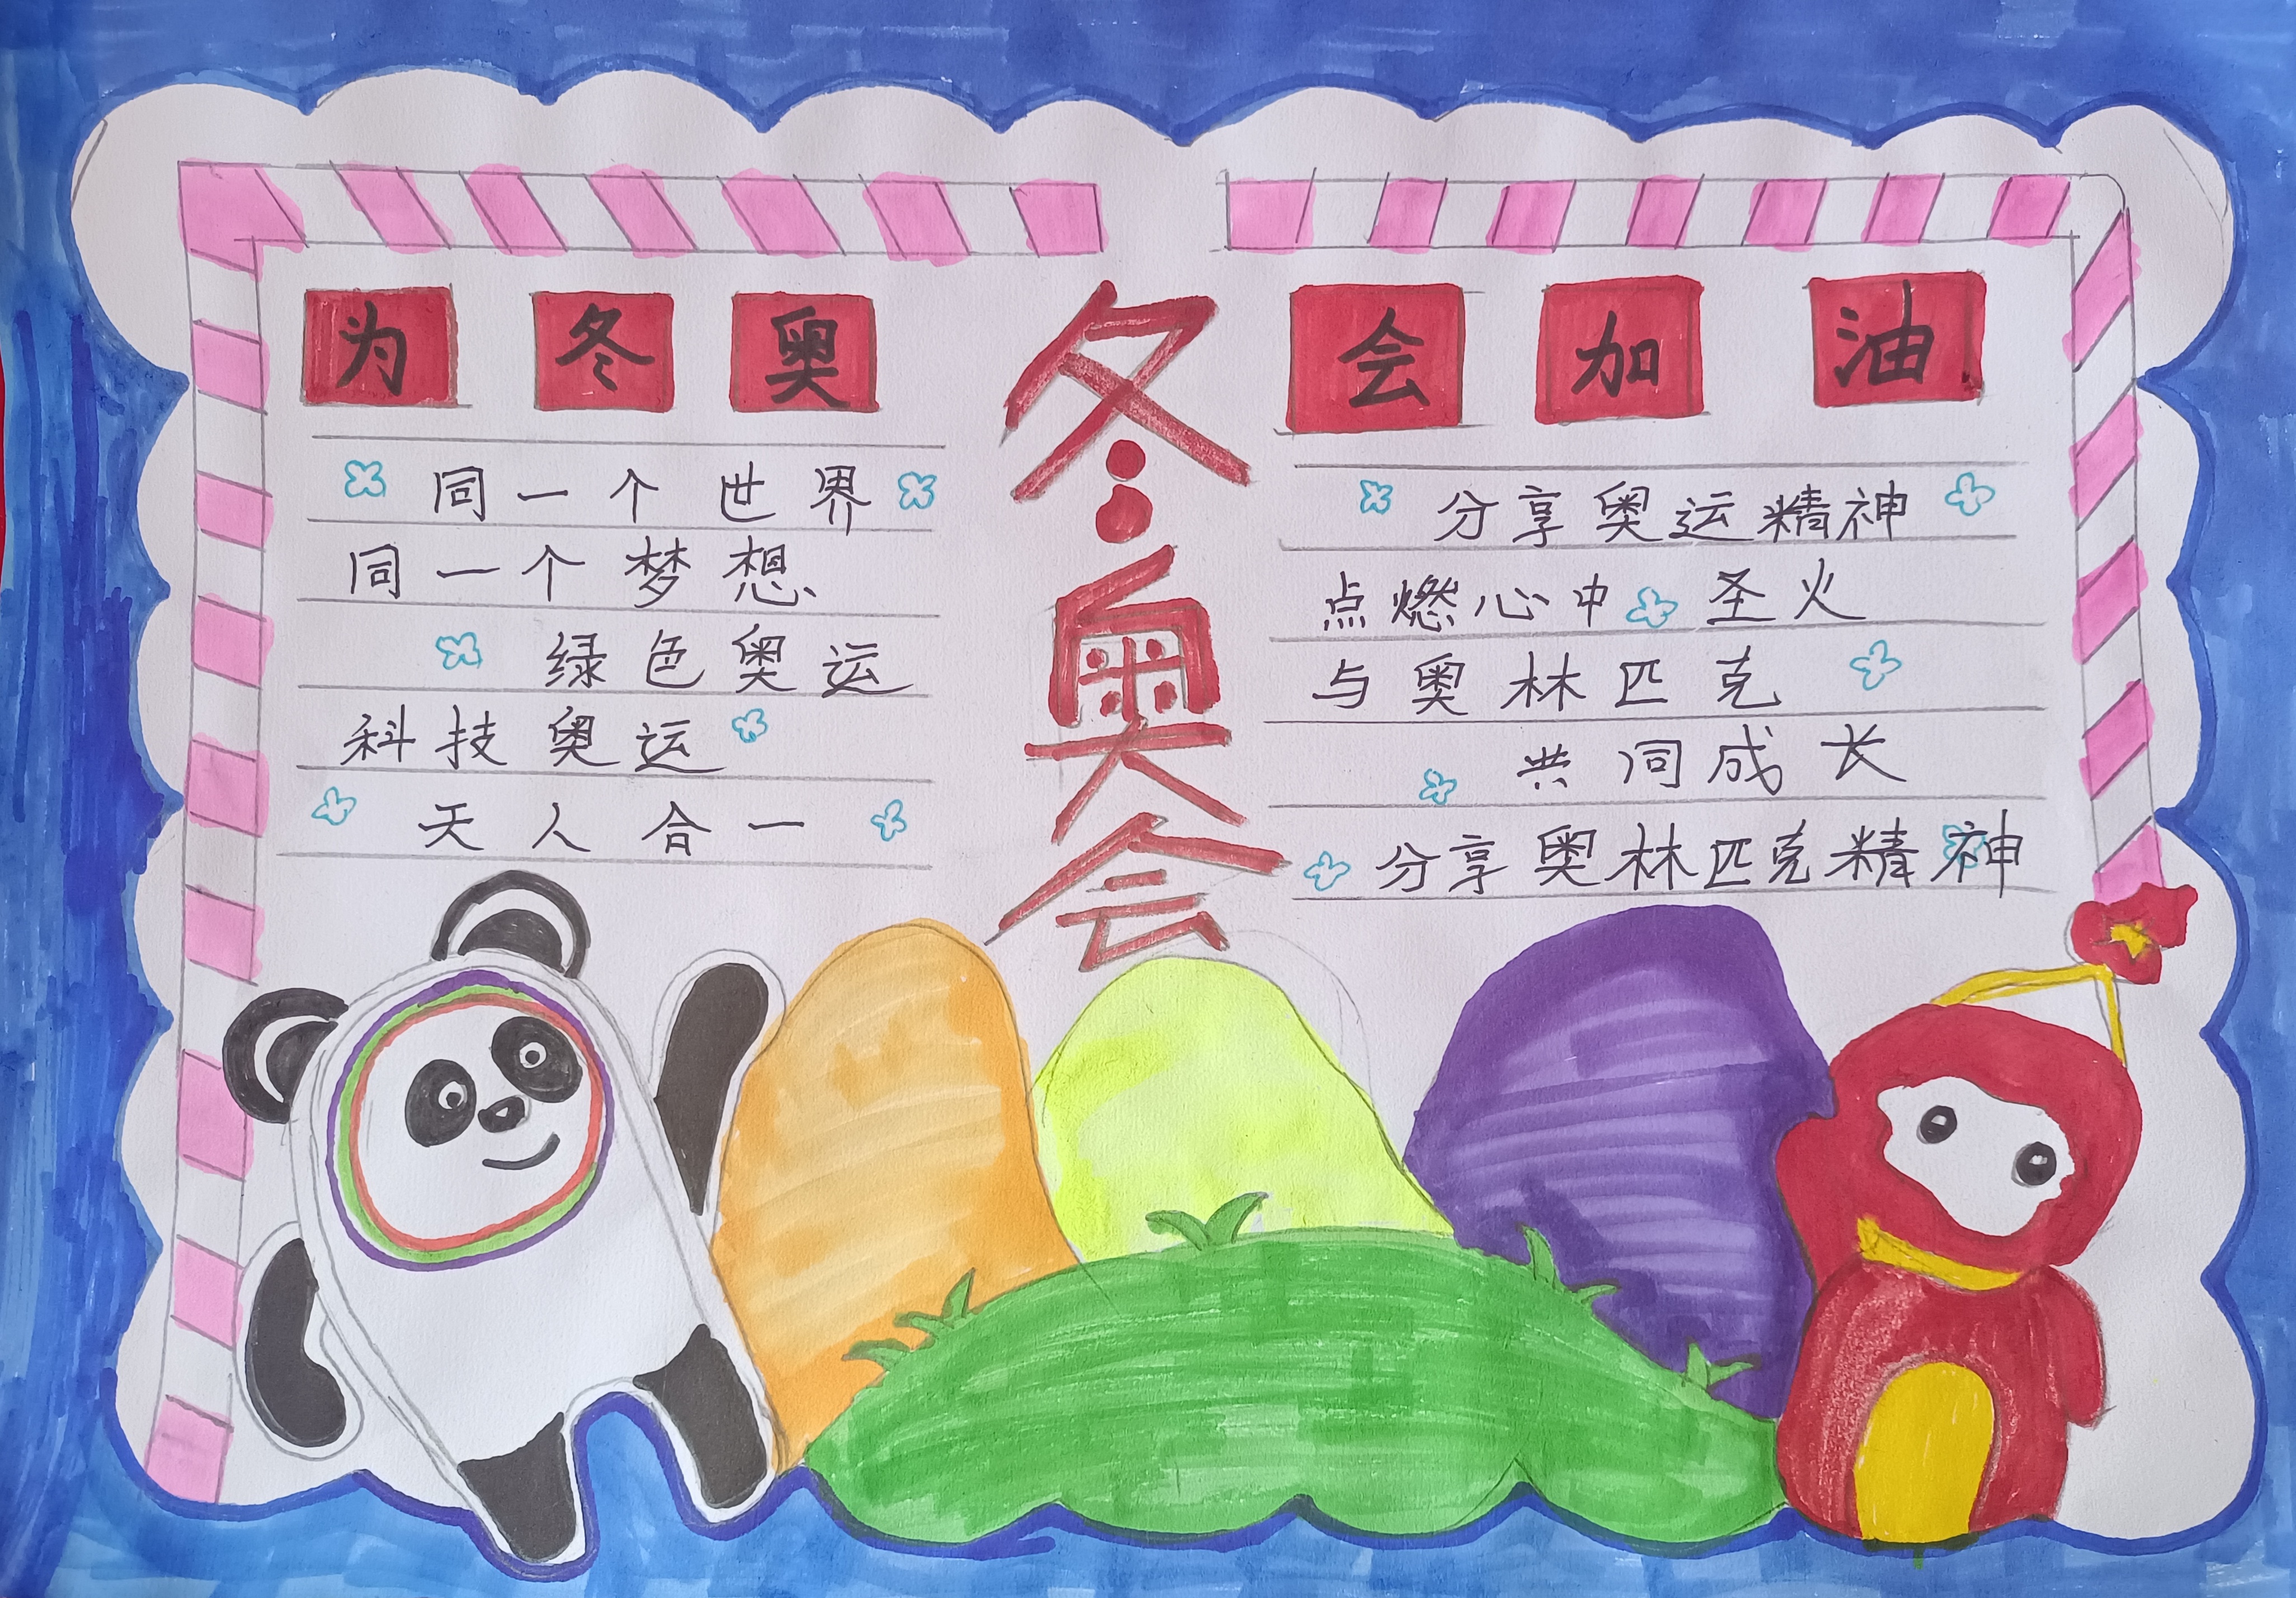 为冬奥会加油
冬奥会
同一个世界
同一个梦想
绿色奥运
科技奥运
天人合一
分享奥运精神
点燃心中圣火
与奥林匹克
共同成长
分享奥林匹克精神